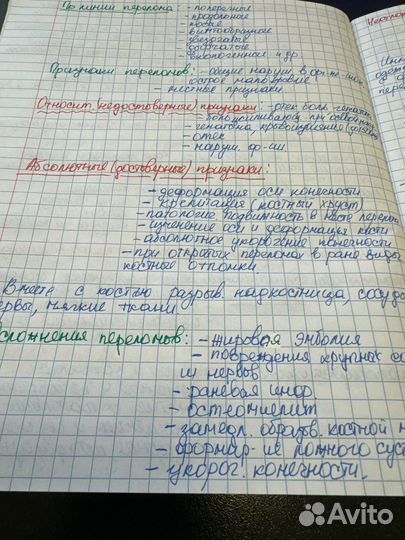 По линии перелома: - поперечные
- продольные
- косые
- винтообразные
- звездчатые
- дырчатые
- вколоченные и др.
Признаки переломов: - общие наруш. в орг-не
острое малокровие
- местные признаки.
Относит. (недостоверные) признаки: - отек боль
- боль
- гематома, кровоизлияния
- отек
- наруш. ф-ии.
Абсолютные (достоверные) признаки:
- деформация оси конечности
- крепитация (костный хруст)
- патологич. подвижность в месте перелома
- изменение оси и деформация кости
- абсолютное укорочение конечности
- при открытых переломах в ране видны
костные отломки.
Вместе с костью разрыв. надкостница, сосуды
нервы, мягкие ткани.
сложнения переломов: - жировая эмболия
- повреждения крупных
и нервов
- раневая инф.
- остеомиелит
- замедл. образов. костной м
- формир-ие ложного суст
- укороч. конечности.
Avito